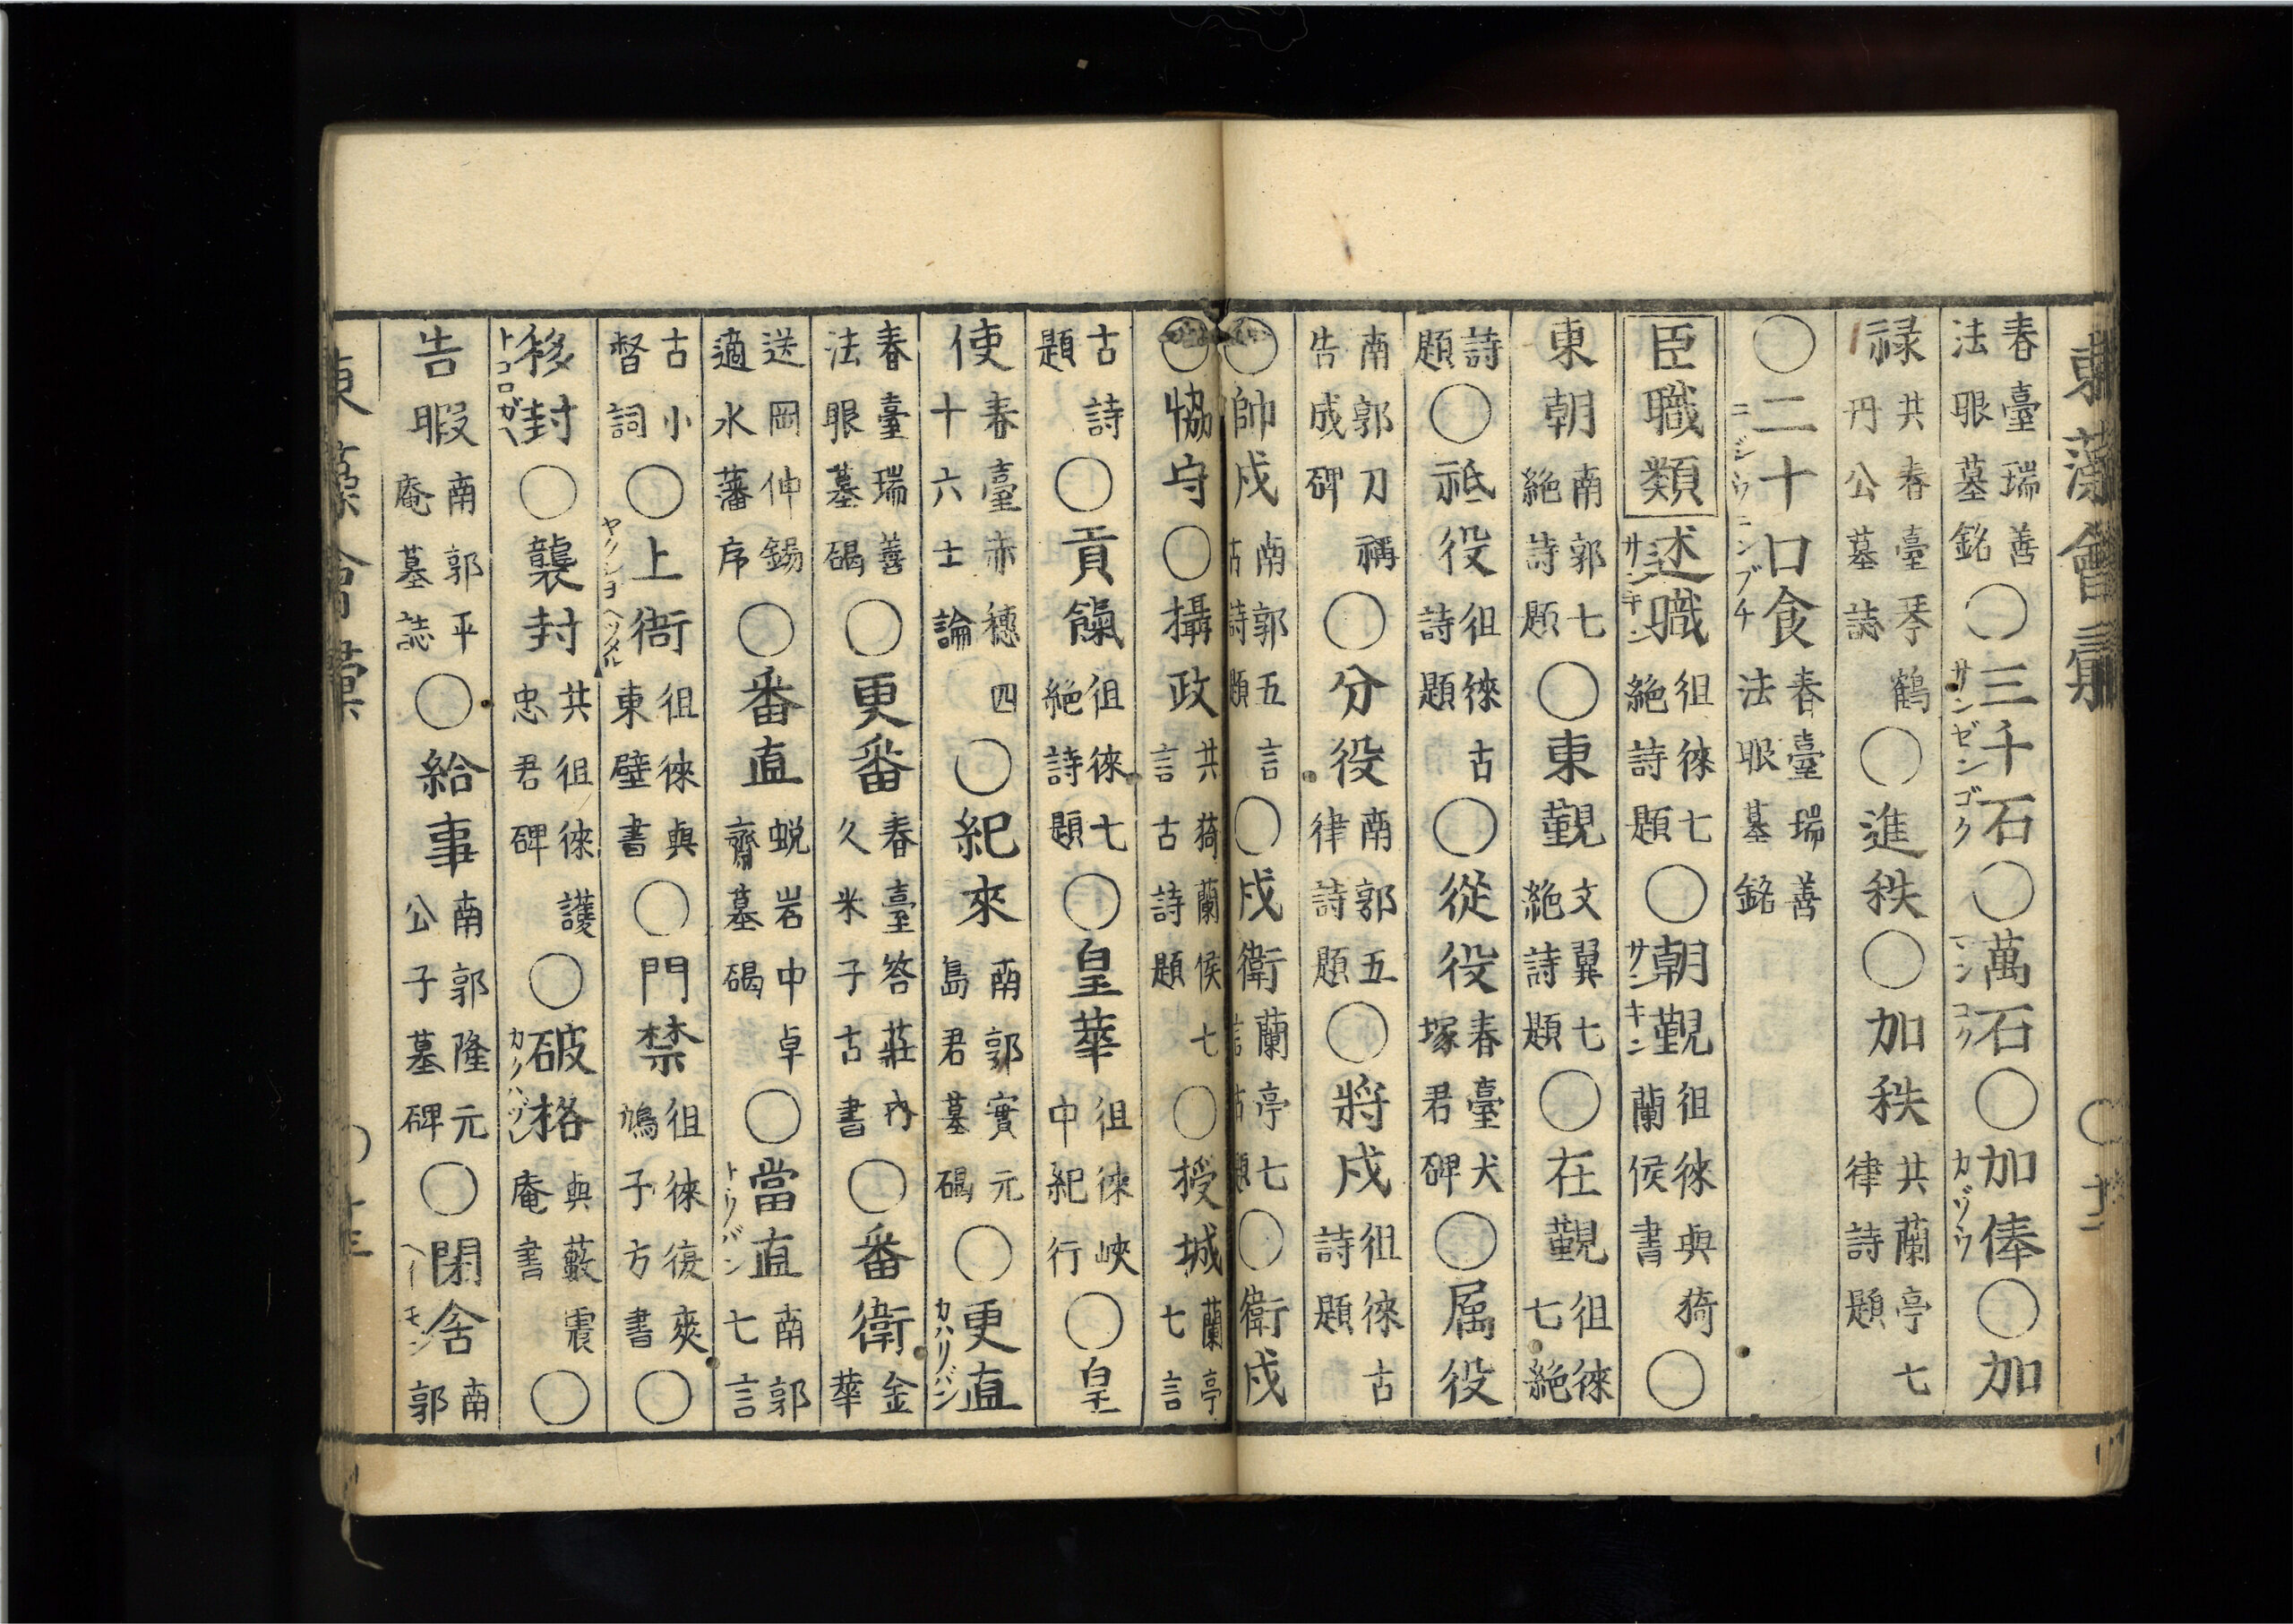 東藻會彙
春臺瑞善法眼墓銘○三千石サンゼンゴク○萬石マンコク○加俸カゾウ○加
禄共春臺琴鶴丹公墓誌○進秩○加秩共蘭亭七律詩題
○二十口食ニジウニンブチ春臺瑞善法眼墓銘
臣職類述職サンキン徂徠七絶詩題○朝覲サンキン徂徠與猗蘭侯書○
東朝南郭七絶詩題○東覲文翼七絶詩題○在覲徂徠七絶
詩題○祗役徂徠古詩題○從役春臺犬塚君碑○属役
南郭刀祢告成碑○分役南郭五律詩題○將戍徂徠古詩題
○帥戍南郭五言古詩題○戍衛蘭亭七言古題○衛戍
○恊守○攝政共猗蘭侯七言古詩題○授城蘭亭七言
古詩題○貢餼徂徠七絶詩題○皇華徂徠峽中紀行○皇
使春臺赤穗四十六士論○紀來南郭實元島君墓碣○更直カハリバン
春臺瑞善法眼墓碣○更番春臺答莊内久米子古書○番衛金華
送岡仲錫適水藩序○番直蛻岩中卓齋墓碣○當直トウバン南郭七言
古小督詞○上衙ヤクシヨヘツメル徂徠與東壁書○門禁徂徠復爽鳩子方書○
移封トコロガヘ○襲封共徂徠護忠君碑○破格カクハヅレ與藪震庵書○
告暇南郭平庵墓誌○給事南郭隆元公子墓碑○閉舎ヘーモン南郭
東藻會彙